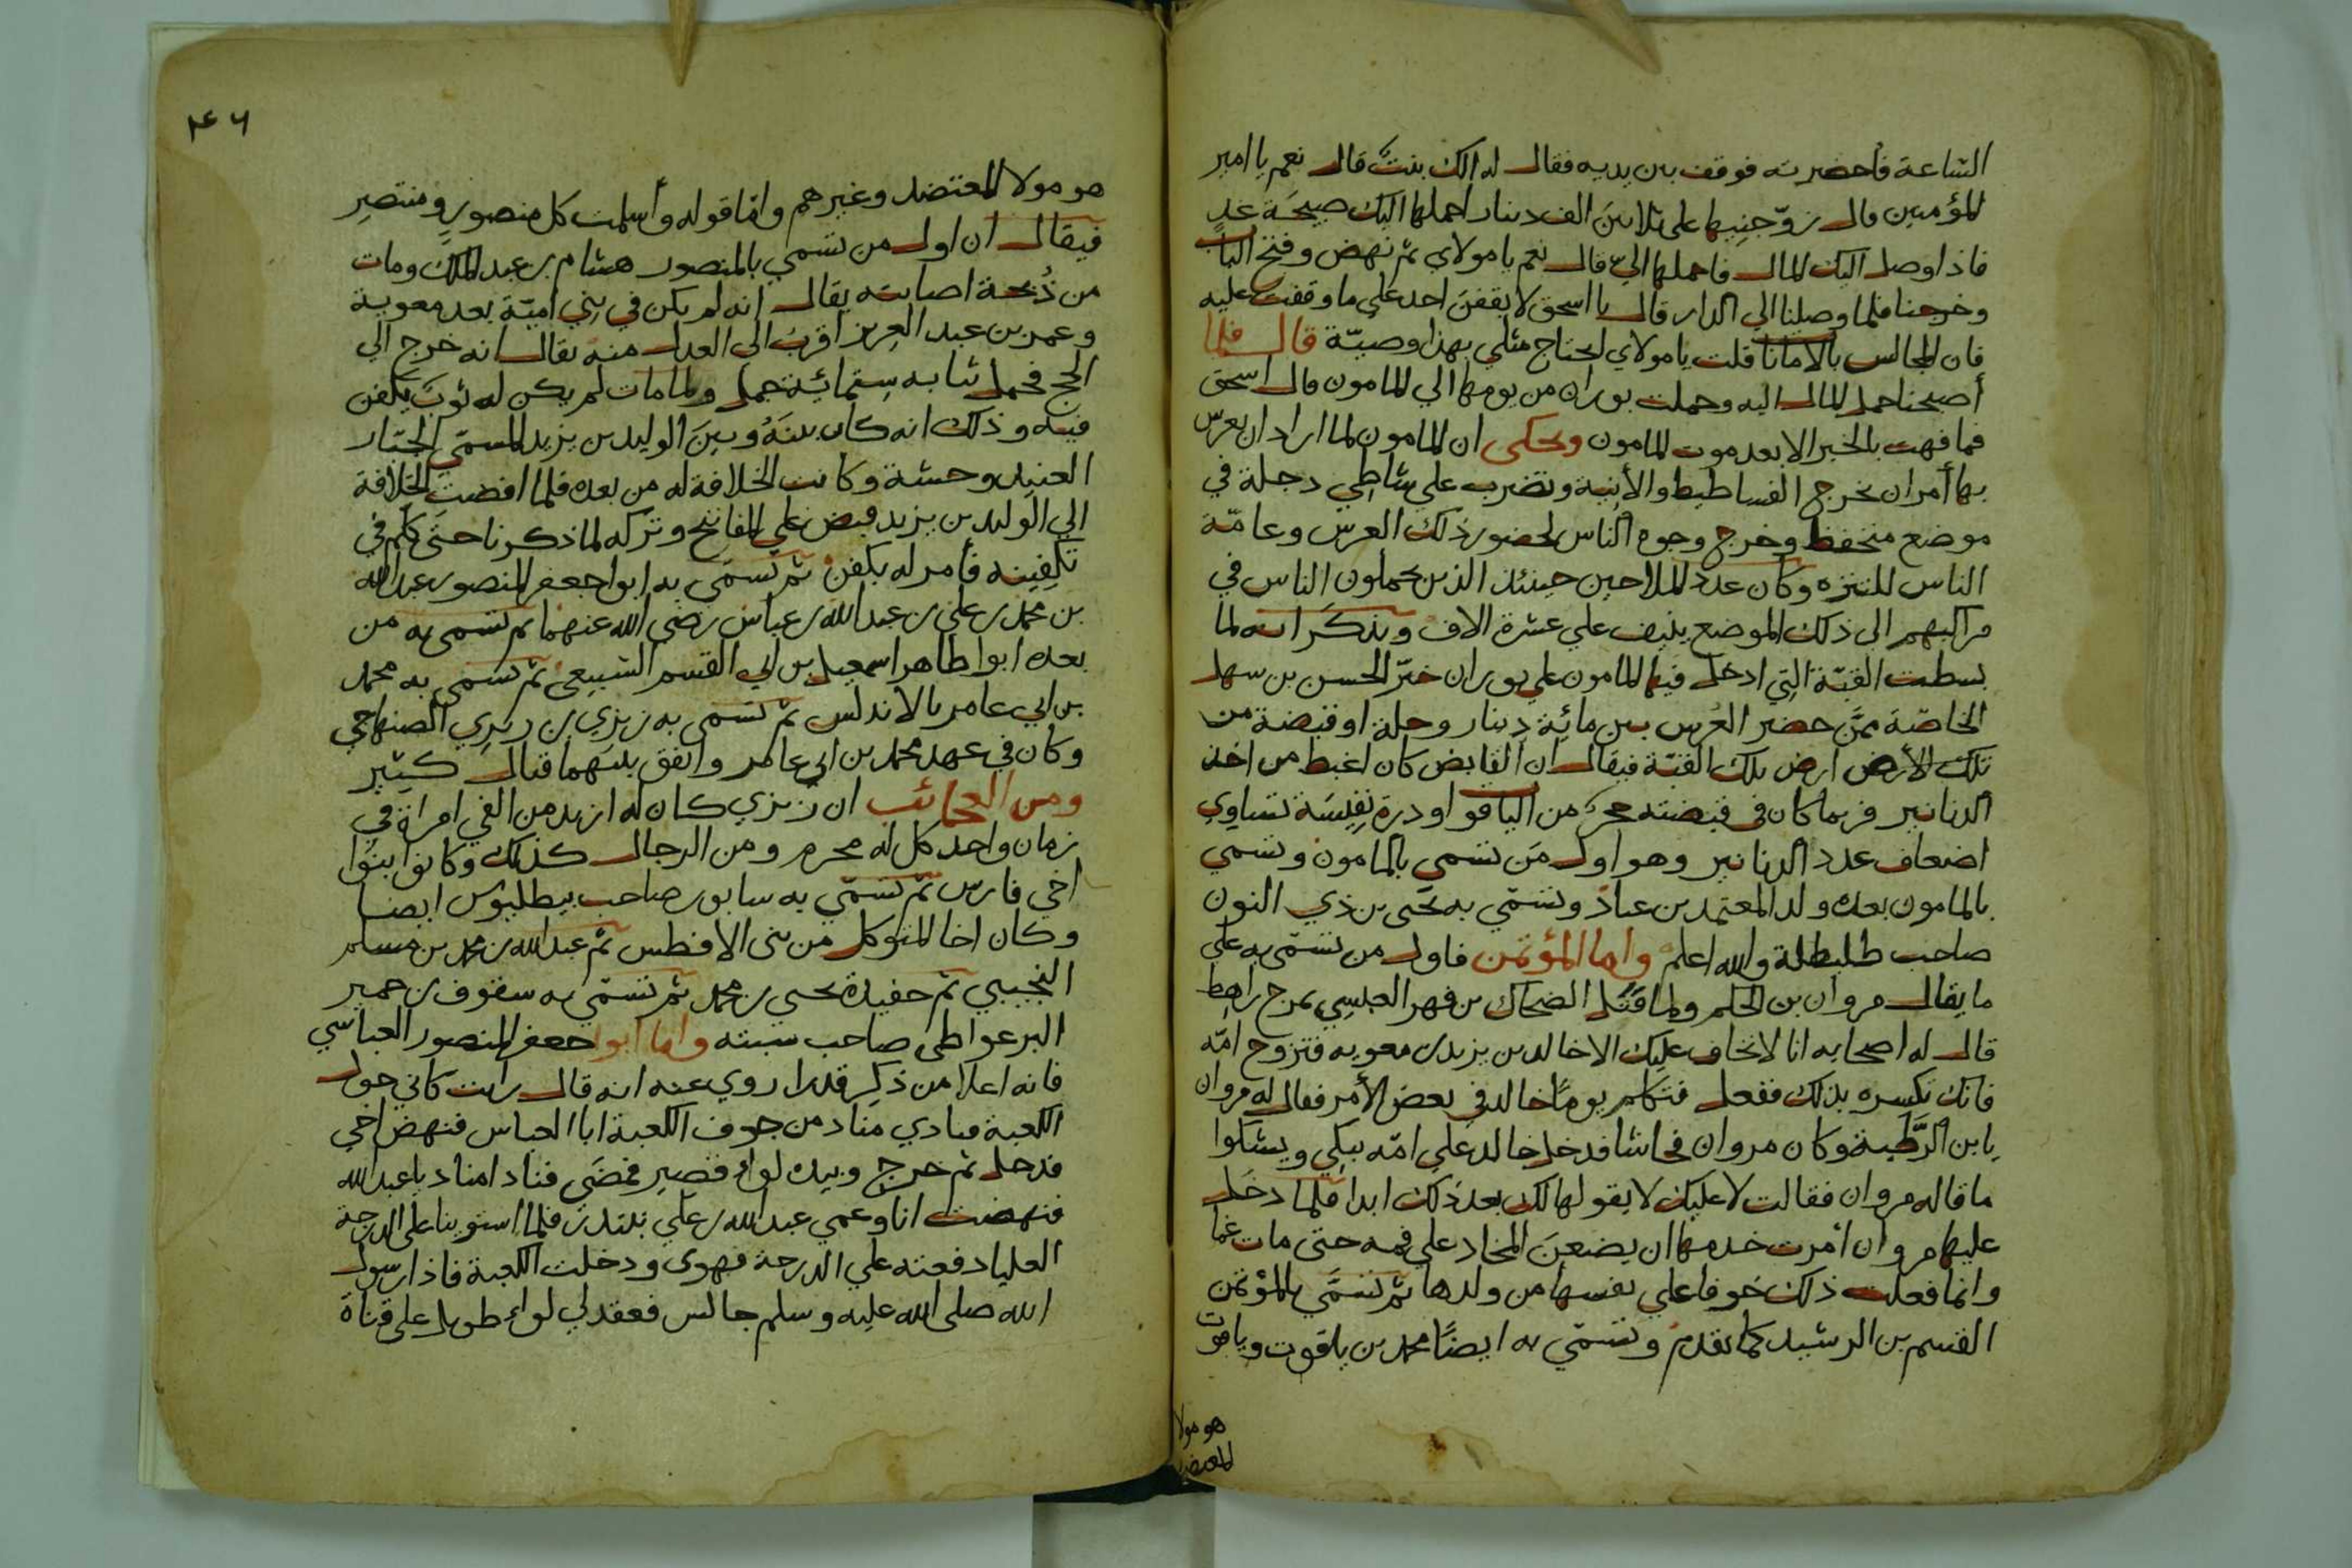 الساعة فأحضرته فوقف بين يديه فقال له الك بنتٌ قال نعم يا امير
المؤمنين قال زوّجنيها على ثلاثين الف دينار احملها اليك صبيحَة غدٍ
فاذا وصل اليك المال فاحملها اليّ قال نعم يا مولاي ثم نهض وفتح الباب
وخرجنا فلما وصلنا الي الدار قال يا اسحق لا يقفنّ احد علي ما وقفت عليه
فان المجالس بالامانا قلت يا مولاي لحتاج مثلي بهذا وصيّة قال فلما
أصبحنا حمل المال اليه وحملت بوران من يومها الي المامون قال اسحق
فما فهت بالخبر الا بعد موت المامون ويحكى ان المامون لما اراد ان يعرس
بها أمر ان يخرج الفساطيط والأبنية وتضرب علي شاطِي دجلة في
موضع منخفظ وخرج وجوه الناس لحضور ذلك العرس وعامّة
الناس للتنزه وكان عدد الملاحين حينئذ الذين يحملون الناس في
مراكبهم الى ذلك الموضع ينيف علي عشرة الاف ويذكر انه لما
بسطت القبّة التي ادخل فيها المامون علي بوران خيّر الحسن بن سهل
الخاصّة ممّن حضر العُرس بين مائِة دينار وحلة او قبضة من
تلك الأرض ارض تلك القبّة فيقال ان القابض كان اغبط من اخذ
الدنانير فربما كان في قبضته حجر من الياقو او درة نفيسَة تساوِي
اضعاف عدد الدنانير وهو اول مَن تسمى بالمامون وتسمي
بالمامون بعده ولد المعتمد بن عباد وتسمّي به يحيى بن ذي النون
صاحب طليطلة والله اعلم واما المؤتمن فاول من تسمّى به علي
ما يقال مروان بن الحكم ولما قَتَل الضحاك بن فهر العبسِي بمرج راهِط
قال له اصحابه انا لا نخاف عليك الا خالد بن يزيد بن معويه فتزوج امّه
فانك تكسره بذلك ففعل فتكلم يومًا خالد في بعض الأمر فقال له مروان
يا بن الرَّطبة وكان مروان فحاشا فدخل خالد علي امّه يبكِي ويشكوا
ما قاله مروان فقالت لا عليك لا يقولها لك بعد ذلك ابدا فلما دخَل
عليها مروان أمرت خدمها ان يضعنَ المخاد علي فمه حتى مات غما
وانما فعلت ذلك خوفا علي نفسها من ولدها ثم تسَمَّي بالمؤتمن
القسم بن الرشيد كما تقدم وتسمّي به ايضًا محمد بن ياقوت وياقوت
هو مولا
المعتضد
٤٦
هو مولا المعتضد وغيرهم واما قوله وأسلمت كل منصورٍ ومنتصِر
فيقال ان اول من تسمي بالمنصور هشام بن عبد الملك ومات
من ذُبحة اصابته يقال انه لم يكن في بني اميّة بعد معوية
وعمر بن عبد العزيز اقربُ الى العدل منه يقال انه خرج الي
الحج فحمل ثيابه ستمائِة جمل ولما مات لم يكن له ثوبٌ يكفن
فيه وذلك انه كان بينَهُ وبينَ الوليد بن يزيد المسمّي الجبّار
العنيد وحشة وكانت الخلافة له من بعده فلما افضتِ الخلافة
الي الوليد بن يزيد قبض علي المفاتيح وتركه لما ذكرنا حتى كلم في
تكفينه فأمر له بكفن ثم تسمّى به ابوا جعفر المنصور عبد الله
بن محمد بن علي بن عبد الله بن عباس رضي الله عنهما ثم تسمى به من
بعده ابوا طاهر اسمعيل بن ابي القسم الشيعي ثم تسمى به محمد
بن ابي عامر بالاندلس ثم تسمى به زيزي بن زيري الصنهاجي
وكان في عهد محمد بن ابي عامر واتفق بينهما قتال كثير
ومن العجائب ان زيزي كان له ازيد من الفي امراة في
زمان واحد كل له محرم ومن الرجال كذلك وكانوا بنُوا
اخي فارس ثم تسمّي به سابور صاحب بيطليوس ايضا
وكان اخا المتوكل من بنى الافطس ثم عبد الله بن محمد بن مسلم
التجيبي ثم حفيده يحيى بن محمد ثم تسمّي به سقوف بن حمير
البرغواطي صاحب سبته واما ابوا جعفر المنصور العباسي
فانه اعلا من ذكر قدرا روي عنه انه قال رايت كاني حول
الكعبة فنادي مناد من جوف الكعبة ابا العباس فنهض اخي
فدخل ثم خرج وبيده لواء قصير فمضَي فنادا مناد يا عبد الله
فنهضت انا وعمي عبد الله بن علي نبتدر فلما استوينا على الدرجة
العليا دفعته علي الدرجة فهوى ودخلت الكعبة فاذا رسول
الله صلى الله عليه وسلم جالس فعقد لي لواء طويل على قناة